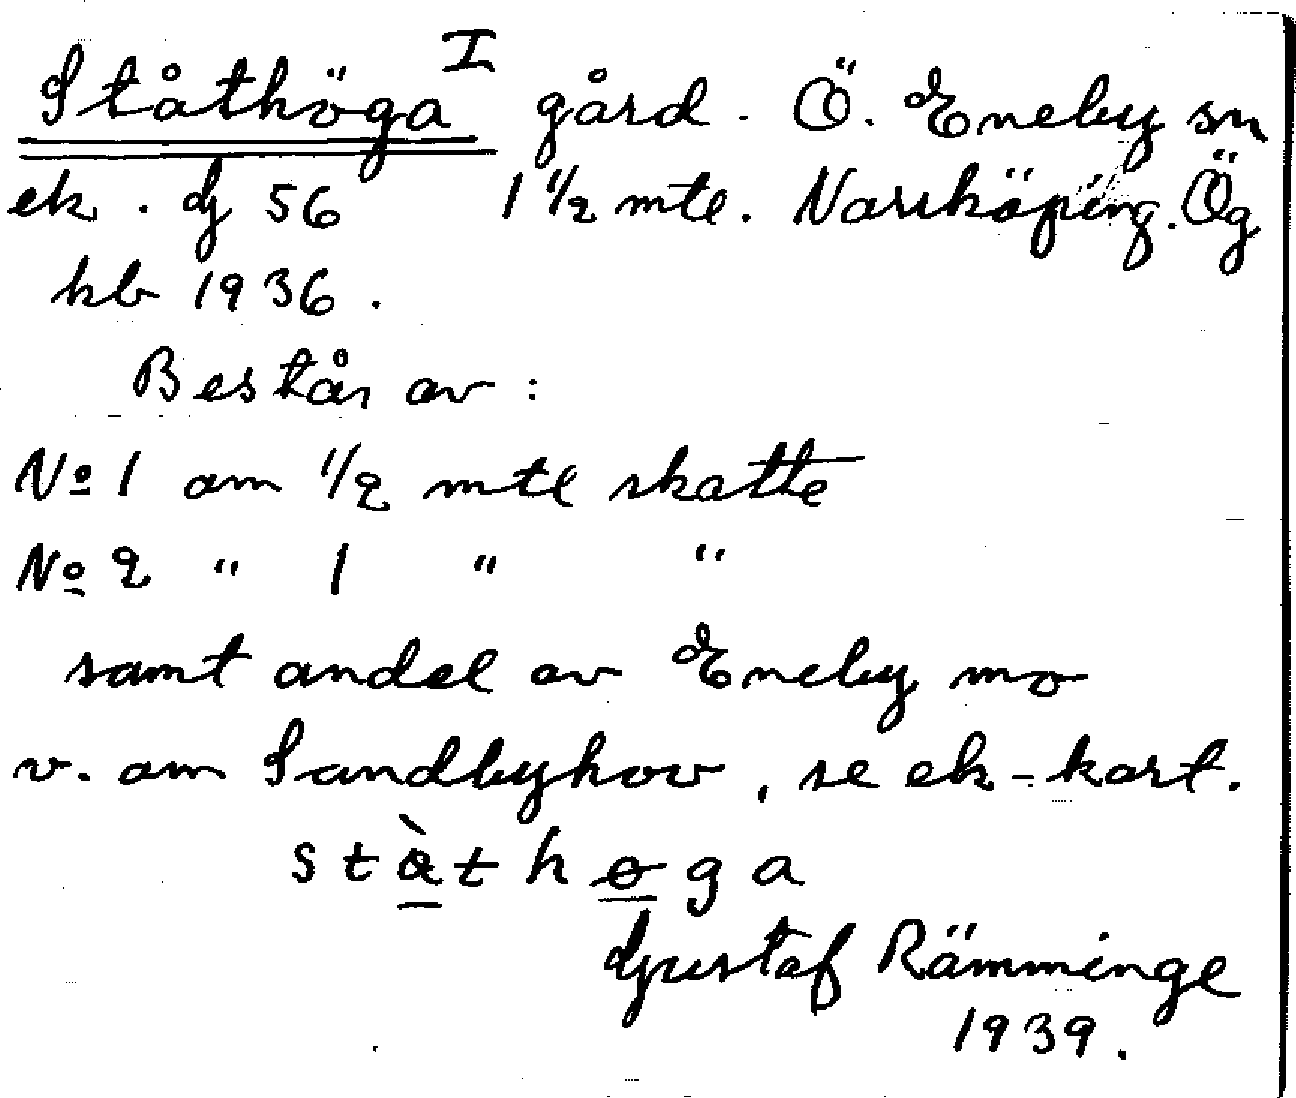 Ståthöga I gård. Ö. Eneby sn
ek. dj 56 1 1/2 mtl. Norrköping. Ög
kb 1936.
Består av:
No 1 om 1/2 mtl skatte
No 2 " 1 " "
samt andel av Eneby mo
v. om Sandbyhov, se ek-kart.
stàthøga
Gustaf Rämminge
1939.